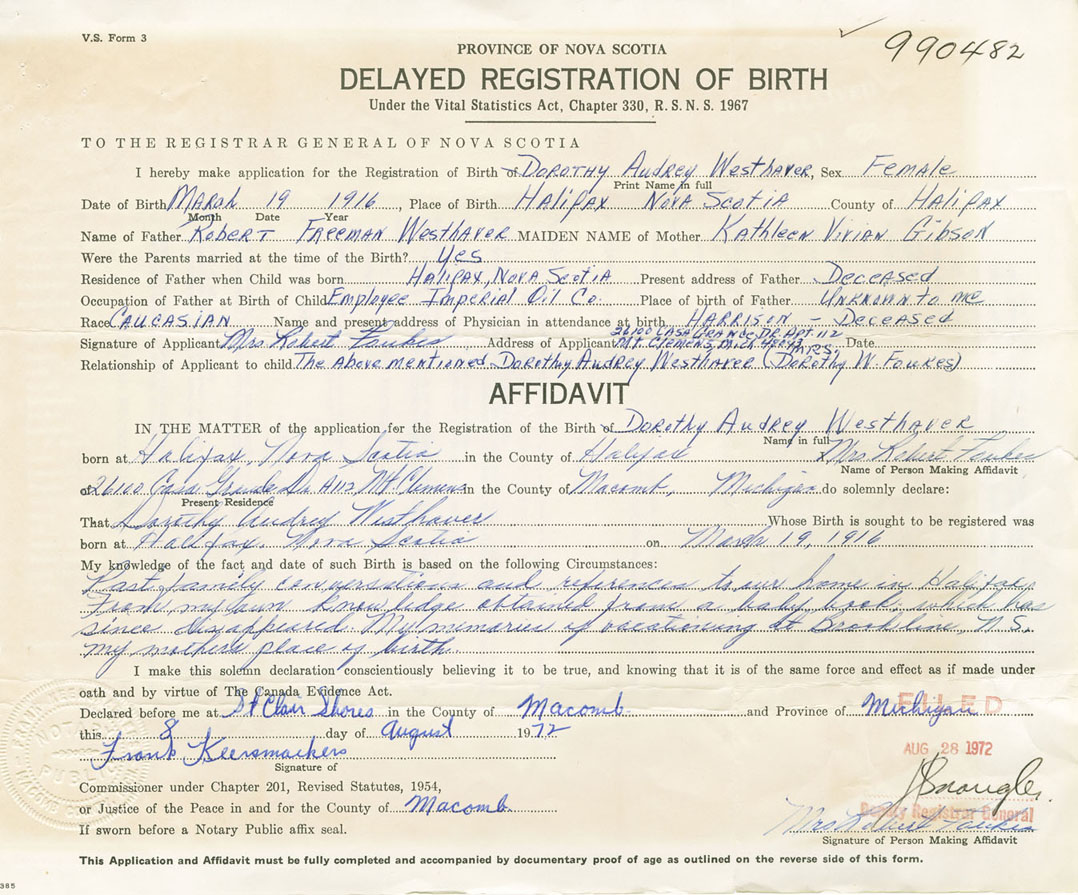 V.S. Form 3
990482
PROVINCE OF NOVA SCOTIA
DELAYED REGISTRATION OF BIRTH
Under the Vital Statistics Act, Chapter 330, R.S.N.S. 1967
TO THE REGISTRAR GENERAL OF NOVA SCOTIA
I hereby make application for the Registration of Birth of Dorothy Audrey Westhaver, Sex Female
Print Name in full
Date of Birth March 19 1916, Place of Birth Halifax Nova Scotia County of Halifax
Month Date Year
Name of Father Robert Freeman Westhaver MAIDEN NAME of Mother Kathleen Vivian Gibson
Were the Parents married at the time of the Birth? Yes
Residence of Father when Child was born Halifax, Nova Scotia Present address of Father Deceased
Occupation of Father at Birth of Child Employee Imperial Oil Co. Place of birth of Father Unknown to me
Race Caucasian Name and present address of Physician in attendance at birth Harrison - Deceased
26100 Casa Grande Dr. Apt. 112
Signature of Applicant Mrs Robert Foukes Address of Applicant Mt. Clemens, Mich 48043 Date
Mrs.
Relationship of Applicant to child The Above mentioned Dorothy Audrey Westhaver (Dorothy W. Foukes)
AFFIDAVIT
IN THE MATTER of the application for the Registration of the Birth of Dorothy Audrey Westhaver
Name in full
born at Halifax, Nova Scotia in the County of Halifax Mrs Robert Foukes
Name of Person Making Affidavit
of 26100 Casa Grande Dr. A112 Mt Clemens in the County of Macomb, Michigan do solemnly declare:
Present Residence
That Dorothy Audrey Westhaver Whose Birth is sought to be registered was
born at Halifax, Nova Scotia on March 19, 1916
My knowledge of the fact and date of such Birth is based on the following Circumstances:
Past family conversations and references to our home in Halifax,
From my own knowledge obtained from a baby book, which has
since disappeared. My memories of vacationing at Brookline, N.S.
my mothers place of birth.
I make this solemn declaration conscientiously believing it to be true, and knowing that it is of the same force and effect as if made under
oath and by virtue of The Canada Evidence Act.
Declared before me at St Clair Shores in the County of Macomb and Province of Michigan
FILED
this 8 day of August 1972
AUG 28 1972
Frank Keersmaekers
Signature of
Commissioner under Chapter 201, Revised Statutes, 1954,
or Justice of the Peace in and for the County of Macomb
Deputy Registrar General
If sworn before a Notary Public affix seal.
Mrs Robert Foukes
Signature of Person Making Affidavit
This Application and Affidavit must be fully completed and accompanied by documentary proof of age as outlined on the reverse side of this form.
385